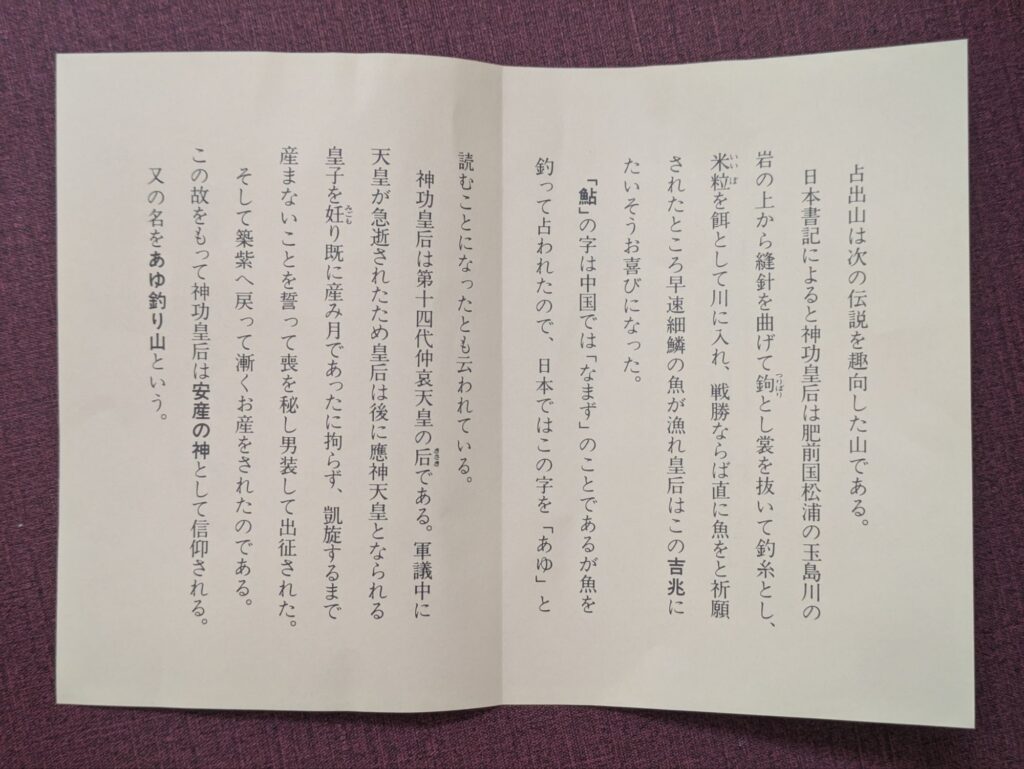 占出山は次の伝説を趣向した山である。
日本書記によると神功皇后は肥前国松浦の玉島川の
岩の上から縫針を曲げて鉤つりばりとし裳を抜いて釣糸とし、
米粒いいぼを餌として川に入れ、戦勝ならば直に魚をと祈願
されたところ早速細鱗の魚が漁れ皇后はこの吉兆に
たいそうお喜びになった。
「鮎」の字は中国では「なまず」のことであるが魚を
釣って占われたので、日本ではこの字を「あゆ」と
読むことになったとも云われている。
神功皇后は第十四代仲哀天皇の后きさきである。軍議中に
天皇が急逝されたため皇后は後に應神天皇となられる
皇子を妊みごもり既に産み月であったに拘らず、凱旋するまで
産まないことを誓って喪を秘し男装して出征された。
そして築紫へ戻って漸くお産をされたのである。
この故をもって神功皇后は安産の神として信仰される。
又の名をあゆ釣り山という。